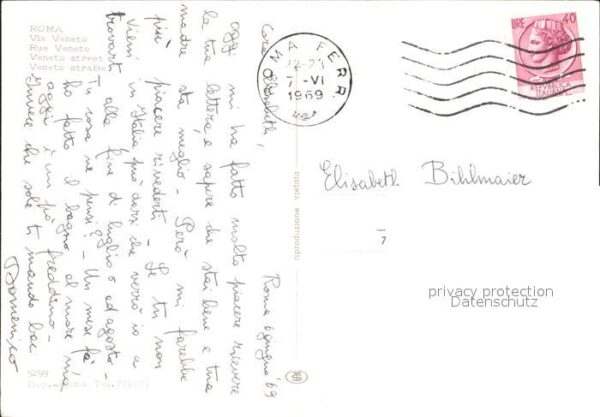 ROMA
Via Veneto
Rue Veneto
Veneto street
Veneto straße
Roma 6 giugno '69
Cara Elisabeth,
oggi mi ha fatto molto piacere ricevere
la tua lettera, e sapere che stai bene e tua
madre sta meglio - Però mi farebbe
più piacere rivederti - Se tu non
vieni in Italia può darsi che verrò io a
trovarti alla fine di luglio o ad agosto -
Tu cosa ne pensi? - Un mese fa
ho fatto il bagno al mare ma
oggi è un pò freddino -
Invece che sole ti mando baci
Domenico
5299
Dep.
riproduzione vietata
MA FERR
7 -VI
1969
LIRE 40
REPVBBLICA
ITALIANA
Elisabeth Bihlmaier
7
privacy protection
Datenschutz